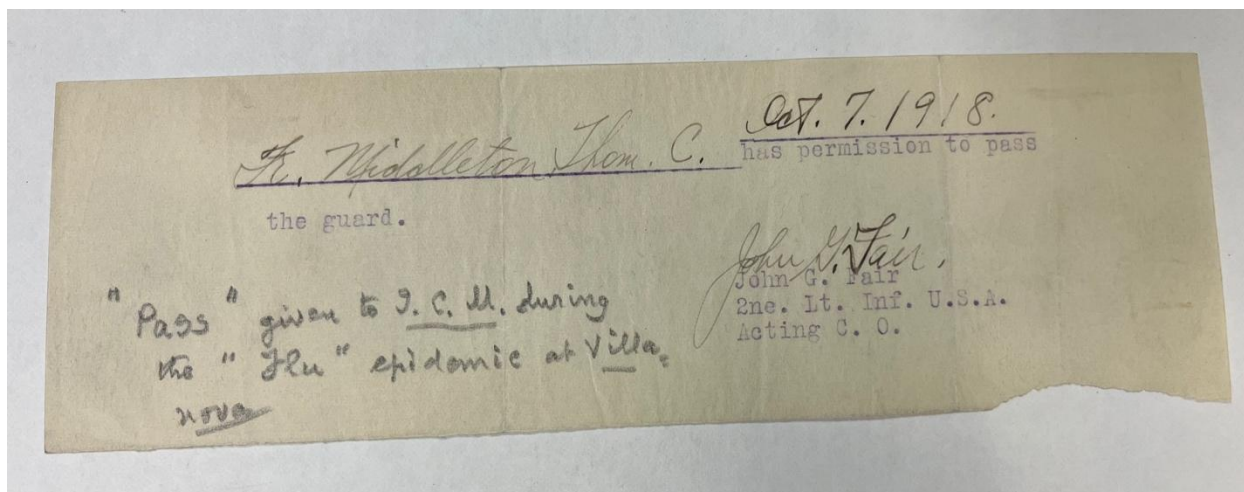 Oct. 7. 1918.
Fr. Middleton Thom. C. has permission to pass
the guard.
John G. Fair.
John G. Fair
2ne. Lt. Inf. U.S.A.
Acting C. O.
"Pass" given to T. C. M. during
the "Flu" epidemic at Villa=
nova